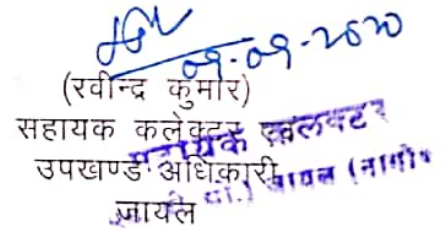 09-09-2020
(रवीन्द्र कुमार)
सहायक कलेक्टर एवं
उपखण्ड अधिकारी
जायल
सहायक कलेक्टर
जायल (नागौर